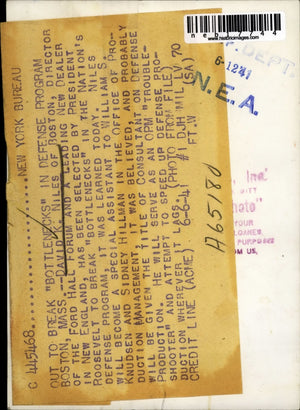 C 445468......NEW YORK BUREAU
OUT TO BREAK "BOTTLENECKS" IN DEFENSE PROGRAM
BOSTON, MASS.--DAVID NILES OF BOSTON, DIRECTOR
OF THE FORD HALL FORUM AND A LEADING NEW DEALER
IN NEW ENGLAND, HAS BEEN SELECTED BY PRESIDENT
ROOSEVELT TO BREAK "BOTTLENECKS" IN THE NATION'S
DEFENSE PROGRAM, IT WAS LEARNED TODAY. NILES
WILL BECOME A SPECIAL ASSISTANT TO WILLIAM S.
KNUDSEN AND SIDNEY HILLMAN IN THE OFFICE OF PRO-
DUCTION MANAGEMENT, IT WAS BELIEVED AND PROBABLY
WILL BE GIVEN THE TITLE OF CONSULTANT ON DEFENSE
PRODUCTION. HE WILL SERVE AS AN OPM "TROUBLE-
SHOOTER" AND ATTEMPT TO SPEED UP DEFENSE PRO-
DUCTION WHEREVER IT LAGS. (PHOTO FROM FILES)
CREDIT LINE (ACME) 6-6-41 #1 DJH MIL LV 70
FT.W (SA)
A65180
DEPT.
N.E.A.
Inc.
YOUR
PURPOSES
OM US,